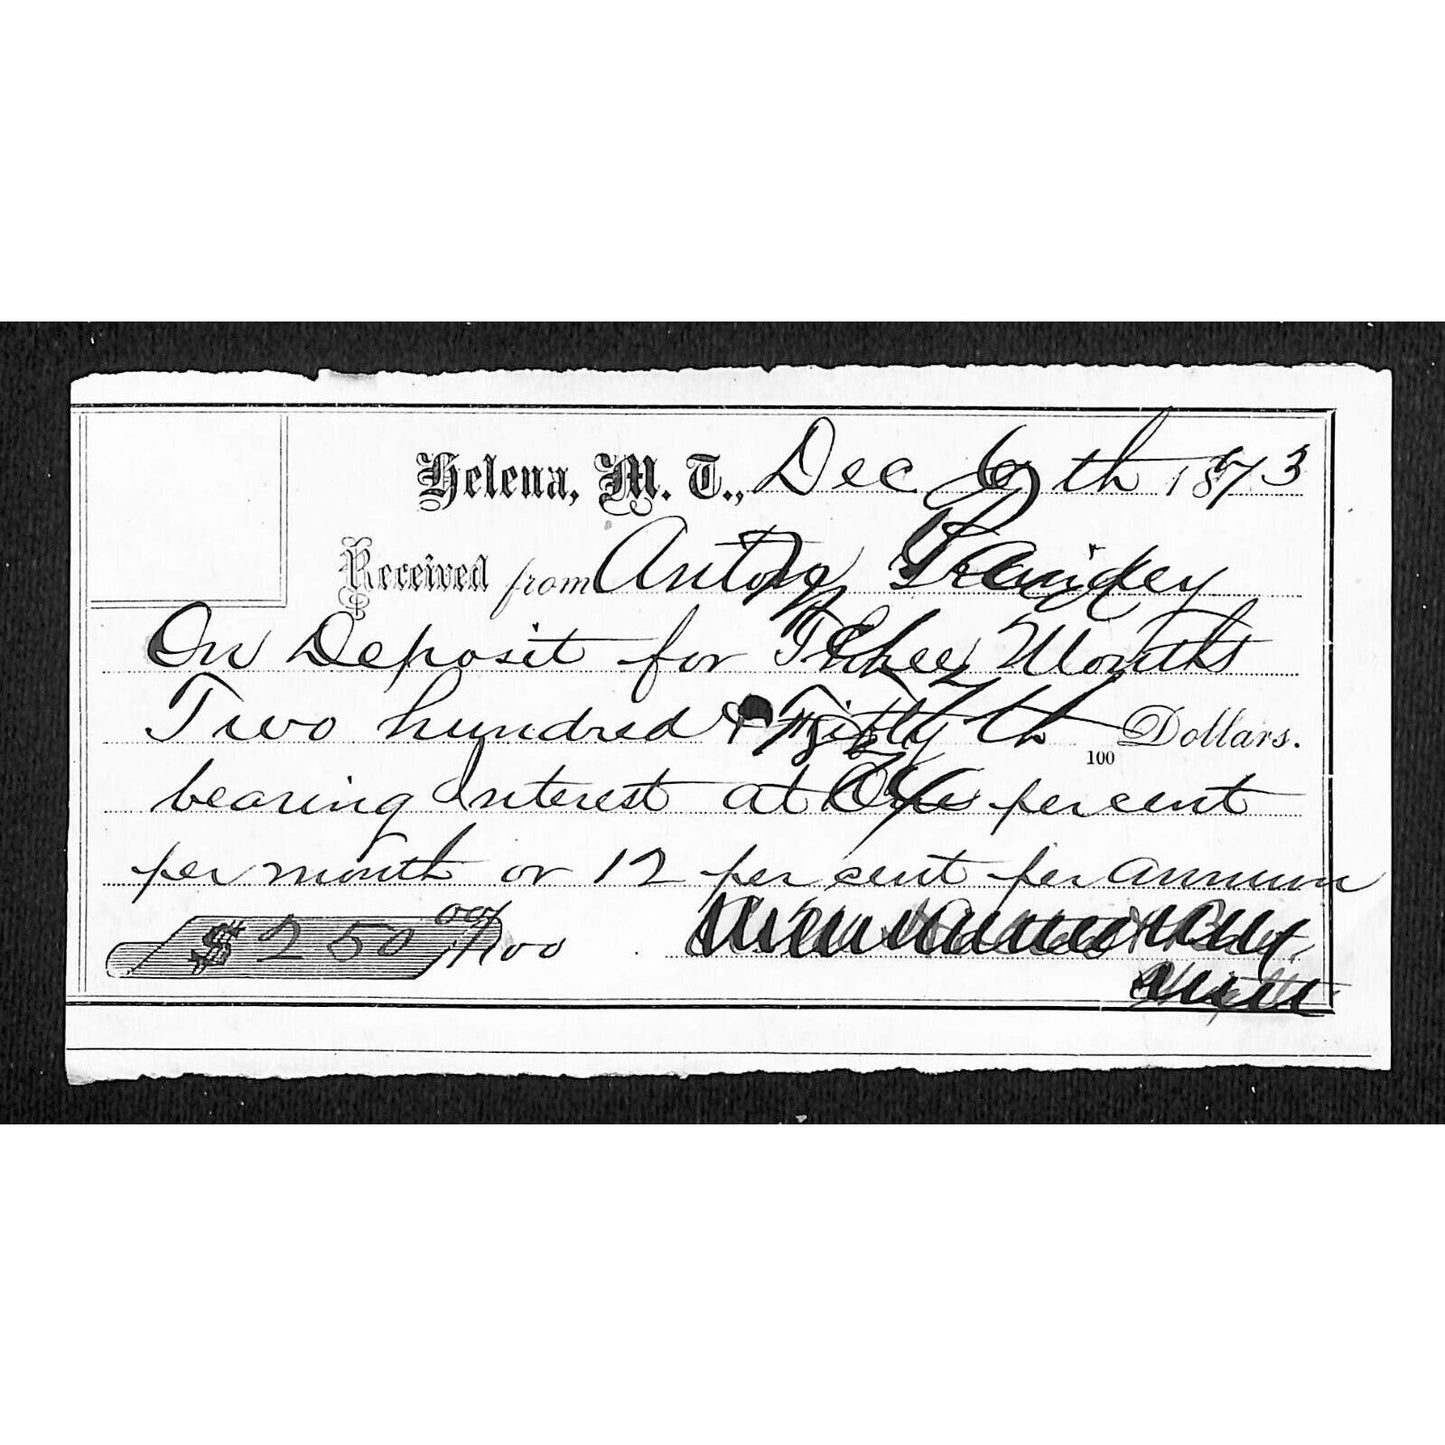 Helena, M. T., Dec 6th 1873
Received from Antony
On Deposit for Three Months
Two hundred & Fifty 100 Dollars.
bearing Interest at One per cent
per month or 12 per cent per annum
$ 250 00/100